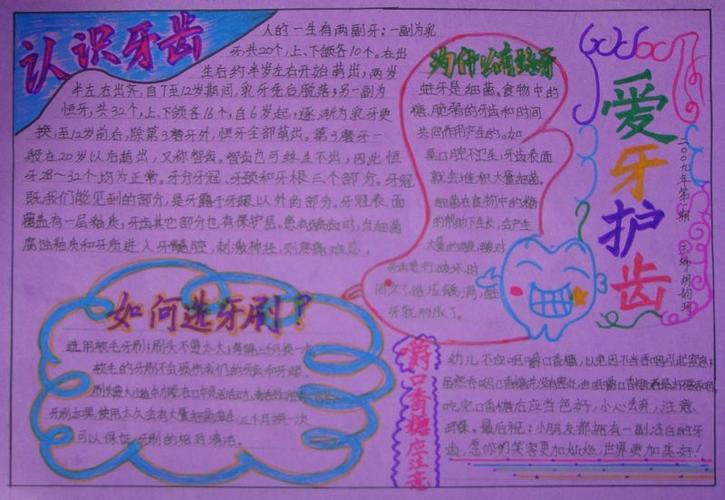 认识牙齿
人的一生有两副牙:一副为乳
牙,共20个,上、下颌各10个。在出
生后约半岁左右开始萌出,两岁
半左右出齐,自7至12岁期间,乳牙先后脱落;另一副为
恒牙,共32个,上、下颌各16个,自6岁起,逐渐为乳牙更
换,至12岁前后,除第3磨牙外,恒牙全部萌出。第3磨牙一
般在20岁以后萌出,又称智齿。智齿也可终生不出,因此恒
牙28~32个均为正常。牙分牙冠、牙颈和牙根三个部分。牙冠
既我们能见到的部分,是牙露于牙龈以外的部分。牙冠表面
覆盖有一层釉质,牙齿其它部分也有保护层。患有龋齿时,当细菌
腐蚀釉质和牙质进入牙髓腔,刺激神经,则疼痛难忍。
为什么有蛀牙
蛀牙是细菌。食物中的
糖、脆弱的牙齿和时间
共同作用产生的。如
果口腔不卫生,牙齿表面
就会堆积大量细菌。
细菌在食物中的糖
的帮助下生长,会产生
大量的酸,酸对
牙齿进行破坏,时
间久了,造成龋洞,蛀
牙就形成了。
爱牙护齿
二00九年第一期
如何选牙刷?
选用软毛牙刷;刷头不要太大;每隔三个月换一次
软毛的牙刷不会损伤我们的牙齿和牙龈
牙刷如果使用太久会有大量细菌滋生,三个月换一次
可以保证牙刷的相对清洁。
嚼口香糖应注意
幼儿不应咀嚼口香糖,以免因不慎吞咽引起窒息;
吃完口香糖后应当包好,小心丢弃,注意
环保。最后祝:小朋友都拥有一副洁白的牙
齿,愿你们笑容更加灿烂,世界更加美好!